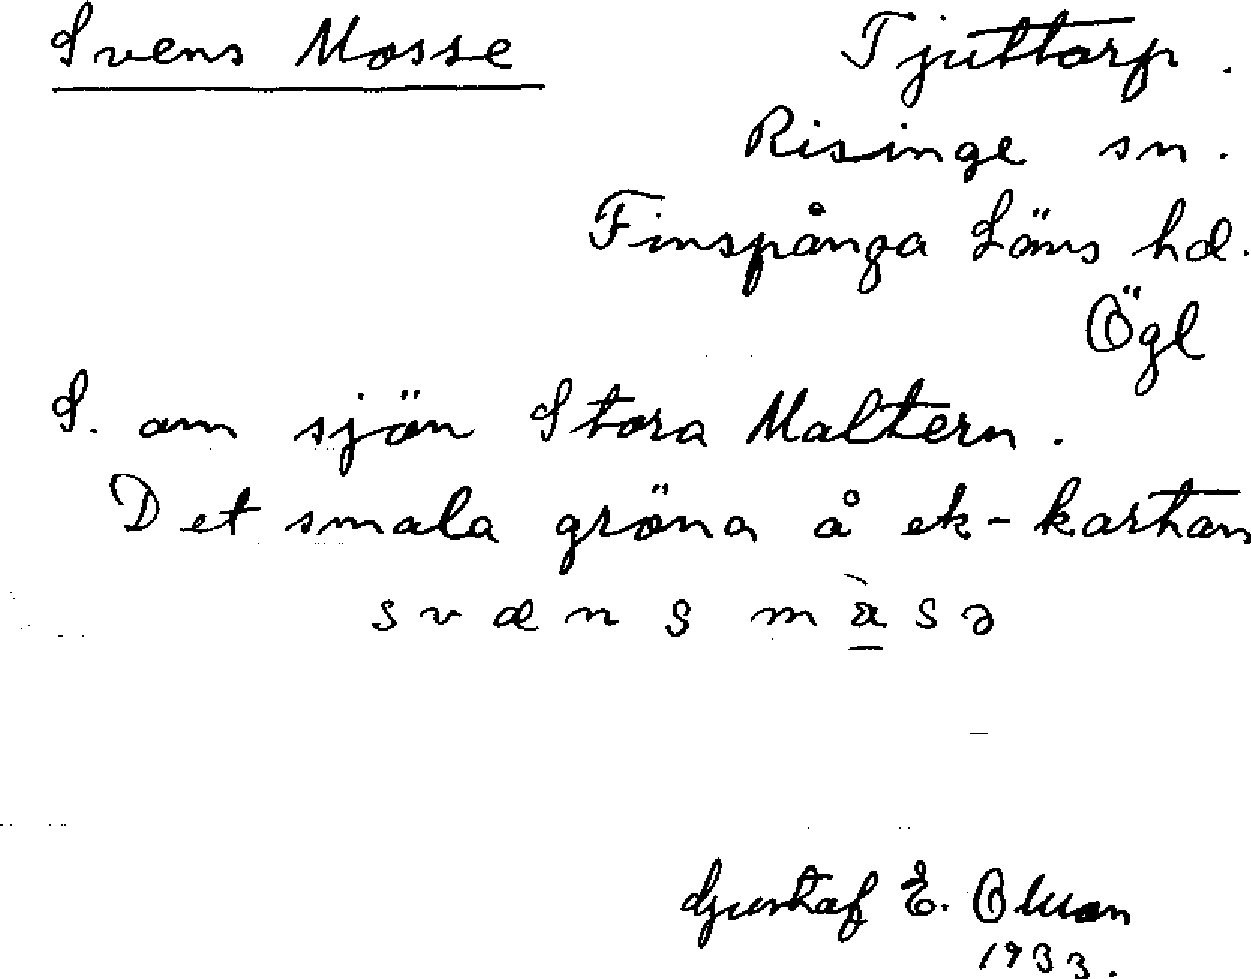 Svens Mosse
Tjuttorp.
Risinge sn.
Finspånga Läns hd.
Ögl
S. om sjön Stora Maltern.
Det smala gröna å ek-kartan
svæns måsə
Gustaf E. Olsson
1933.